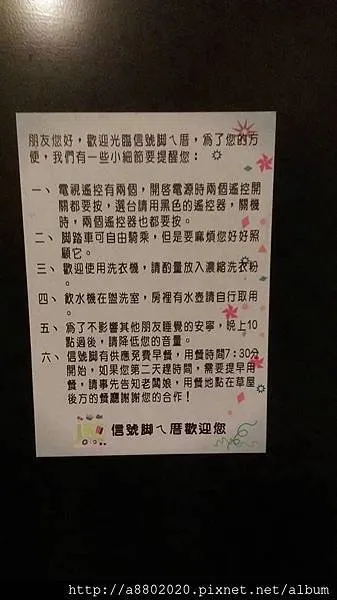 朋友您好，歡迎光臨信號腳ㄟ厝，為了您的方
便，我們有一些小細節要提醒您：
一、電視遙控有兩個，開啓電源時兩個遙控開
關都要按，選台請用黑色的遙控器，關機
時，兩個遙控器也都要按。
二、腳踏車可自由騎乘，但是要麻煩您好好照
顧它。
三、歡迎使用洗衣機，請酌量放入濃縮洗衣粉
。
四、飲水機在盥洗室，房裡有水壺請自行取用
。
五、為了不影響其他朋友睡覺的安寧，晚上10
點過後，請降低您的音量。
六、信號腳有供應免費早餐，用餐時間7:30分
開始，如果您第二天趕時間，需要提早用
餐，請事先告知老闆娘，用餐地點在草屋
後方的餐廳謝謝您的合作！
信號腳ㄟ厝歡迎您
http://a8802020.pixnet.net/album